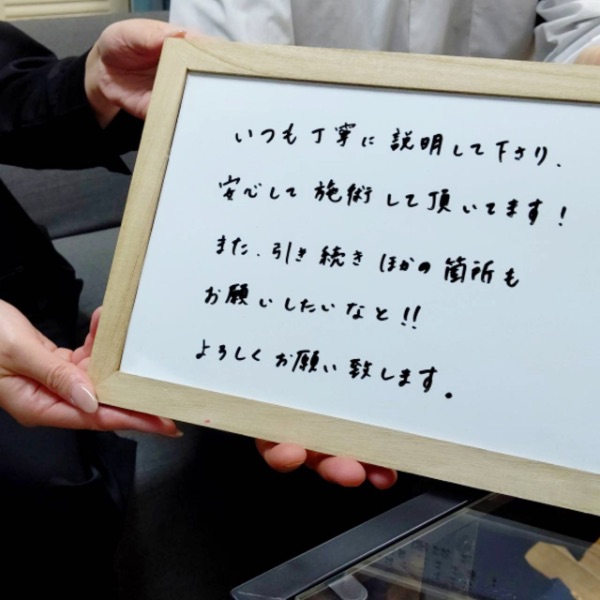 いつも丁寧に説明して下さり、
安心して施術して頂いてます!
また、引き続きほかの箇所も
お願いしたいなと!!
よろしくお願い致します。